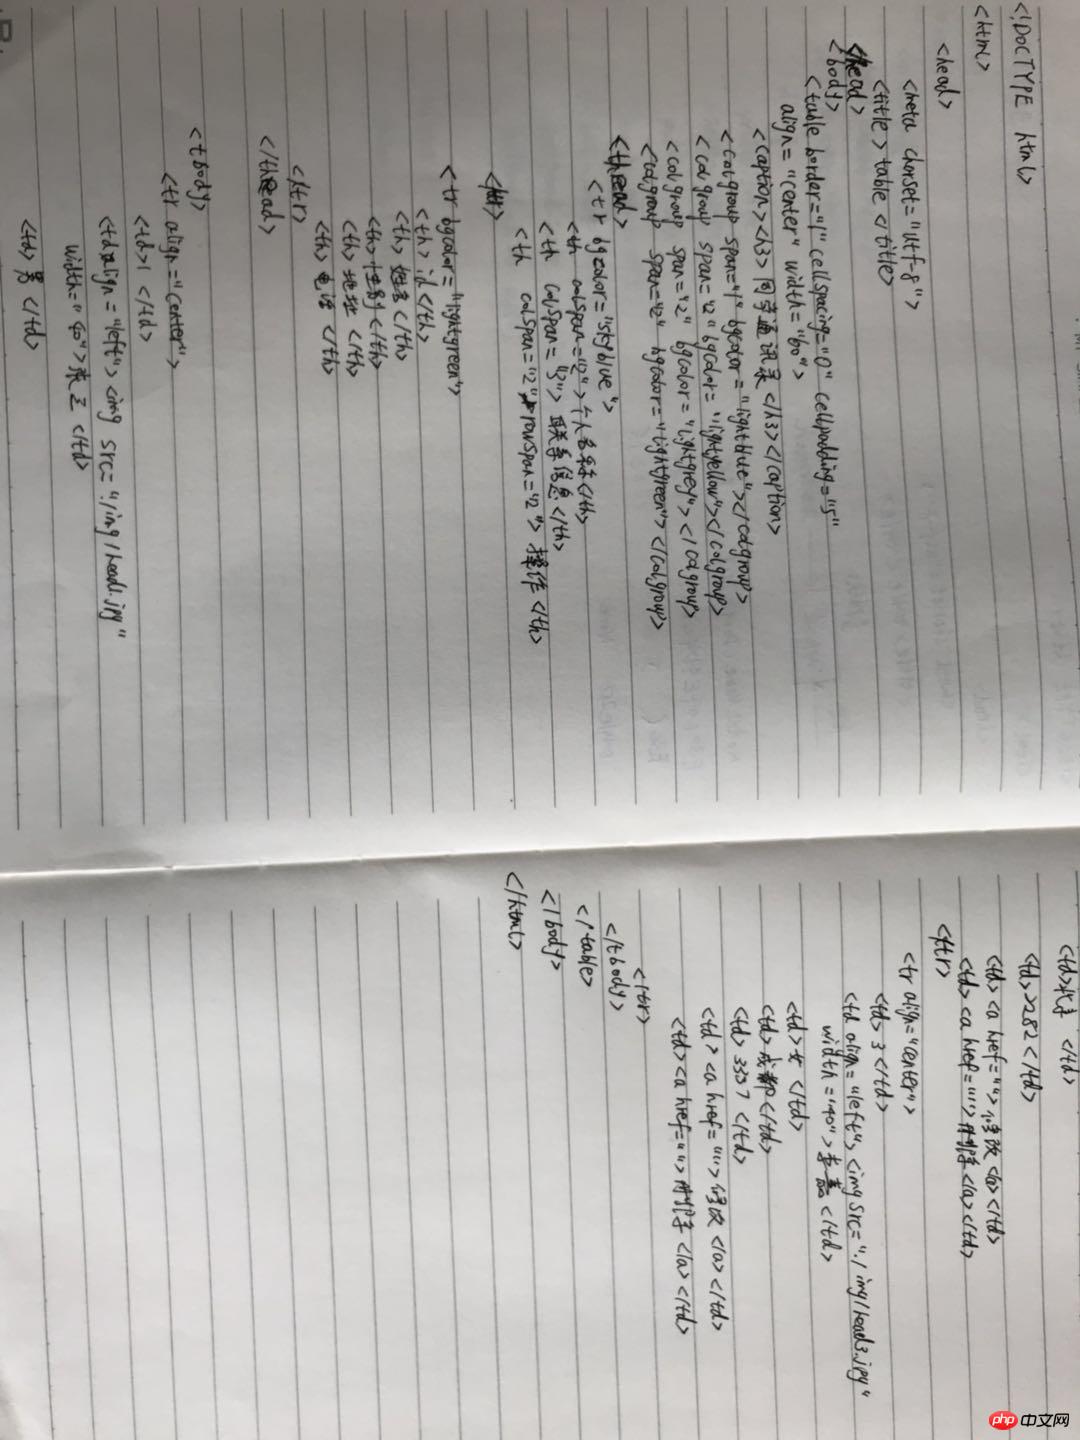 <!DOCTYPE html>
<html>
<head>
<meta charset="utf-8">
<title>table</title>
</head>
<body>
<table border="1" cellspacing="0" cellpadding="5"
align="center" width="60">
<caption><h3>同学通讯录</h3></caption>
<colgroup span="1" bgcolor="lightblue"></colgroup>
<colgroup span="2" bgcolor="lightyellow"></colgroup>
<colgroup span="2" bgcolor="lightgrey"></colgroup>
<colgroup span="2" bgcolor="lightgreen"></colgroup>
<thead>
<tr bgcolor="skyblue">
<th colspan="2">个人名称</th>
<th colspan="3">联系信息</th>
<th colspan="2" rowspan="2">操作</th>
</tr>
<tr bgcolor="lightgreen">
<th>id</th>
<th>姓名</th>
<th>性别</th>
<th>地址</th>
<th>电话</th>
</tr>
</thead>
<tbody>
<tr align="center">
<td>1</td>
<td align="left"><img src="./img/head1.jpg"
width="40">张三</td>
<td>男</td>
<td>北京</td>
<td>2282</td>
<td><a href="">修改</a></td>
<td><a href="">删除</a></td>
</tr>
<tr align="center">
<td>3</td>
<td align="left"><img src="./img/head3.jpg"
width="40">李嘉</td>
<td>女</td>
<td>成都</td>
<td>3337</td>
<td><a href="">修改</a></td>
<td><a href="">删除</a></td>
</tr>
</tbody>
</table>
</body>
</html>
php 中文网